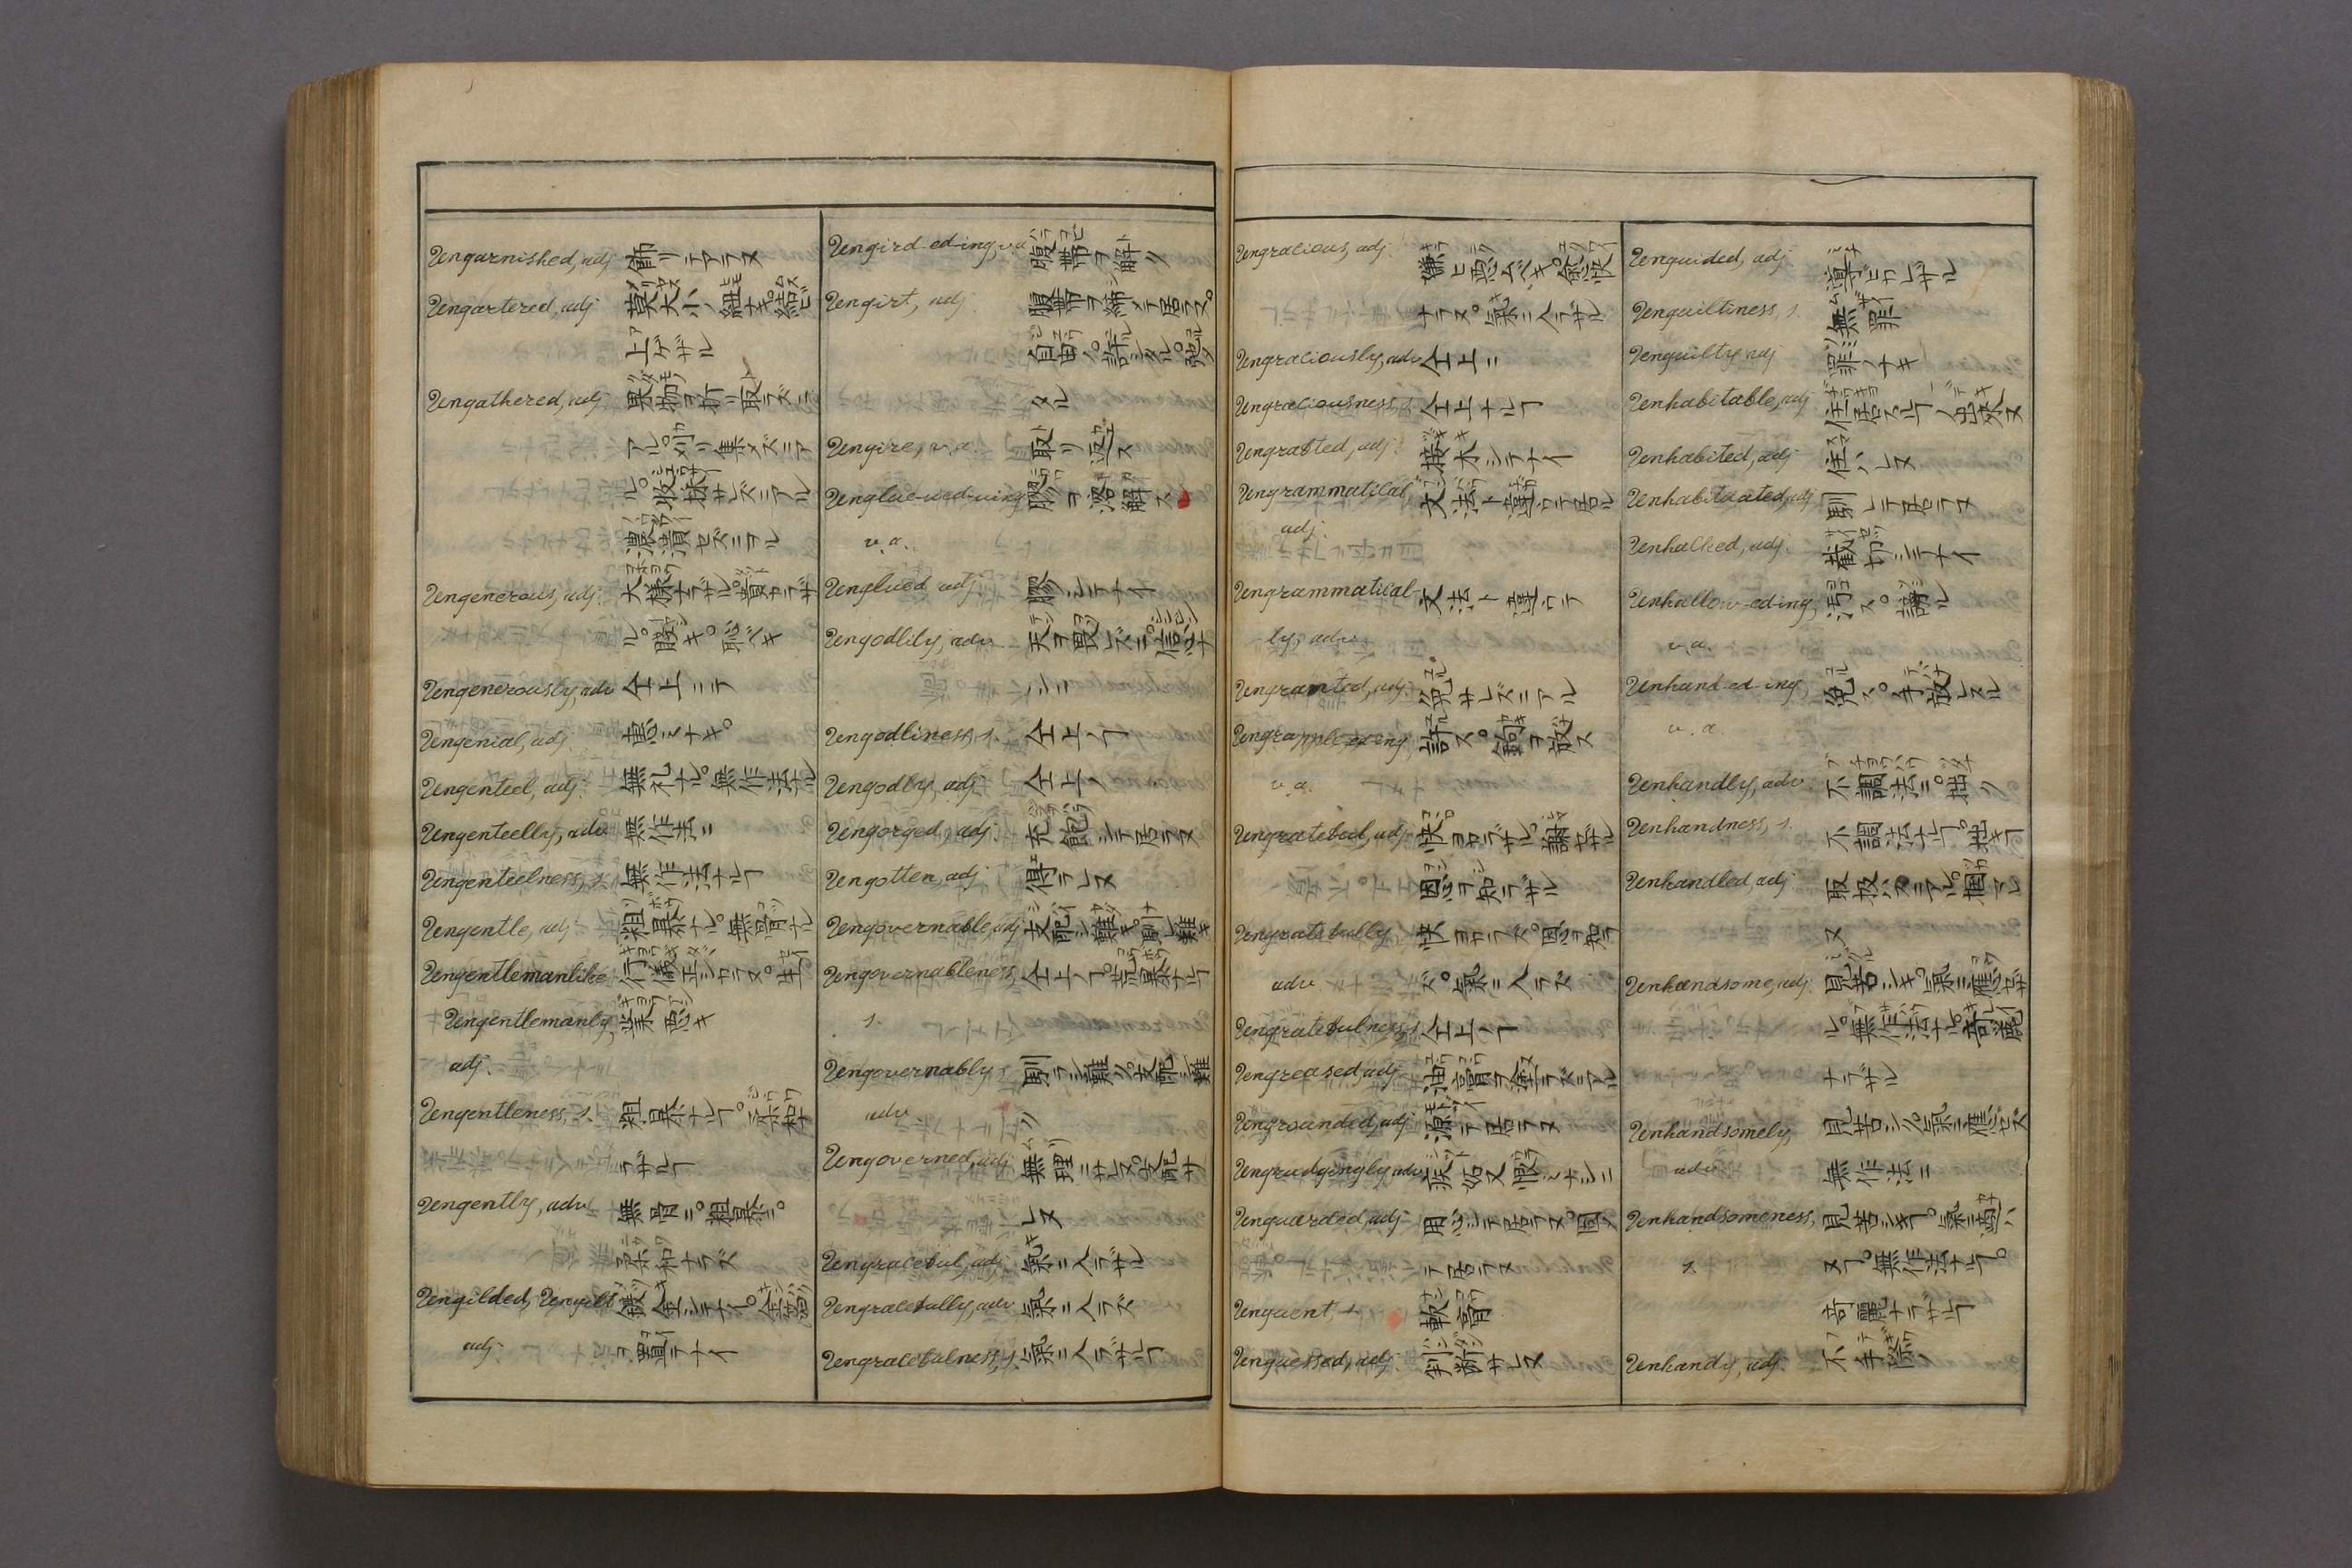 Ungarnished, adj 飾リテアラヌ
Ungartered, adj 莫大小ノ紐ナキ。結ビ
上ゲザル
Ungathered, adj 果物ヲ折リ取ラズニ
アル。刈リ集メズニア
ル。收採サレズニアル
潰セズニアル
Ungenerous, adj. 大様ナラザル。貴カラザ
ル。賤シキ。恥ベキ
Ungenerously, adv 仝上ニテ
Ungenial, adj. 恵ミナキ。
Ungenteel, adj. 無礼ナル。無作法ナル
Ungenteelly, adv 無作法ニ
Ungenteelness, s. 無作法ナルヿ
Ungentle, adj 粗暴ナル。無骨ナル
Ungentlemanlike 行儀正シカラヌ。
Ungentlemanly, 悪キ
adj.
Ungentleness, s. 粗暴ナルヿ。柔和ナ
ラザルヿ
Ungently, adv 無骨ニ。粗暴ニ。
柔和ナラズ
Ungilded, Ungilt 鍍金シテナイ。金箔
adj. ヲ置テナイ
Ungird-ed-ing, v.a 腹帯ヲ解ク
Ungirt, adj. 腹帯ヲ締メテ居ラヌ。
自由ノ。許シタル。弛ノ
タル
Ungive, v.a. 取リ返ス
Unglue-ued-uing 膠ヲ溶解ス
v.a.
Unglued adj. 膠シテナイ
Ungodlily, adv 天ヲ畏レズニ。信心ナ
シニ
Ungodliness, s. 仝上ノヿ
Ungodly, adj. 仝上ノ
Ungorged, adj. 充飽シテ居ラヌ
Ungotten, adj 得ラレヌ
Ungovernable, adj 支配シ難キ。馴レ難キ
Ungovernableness, 仝上ノヿ。荒暴ナルヿ
s.
Ungovernably, 馴ラシ難ク。支配シ難
adv ク
Ungoverned, adj 無理ニサレヌ。支配サ
レヌ
Ungraceful, adj. 氣ニ入ラザル
Ungracefully, adv. 氣ニ入ラズ
Ungracefulness, s. 氣ニ入ラザルヿ
Ungracious, adj. 嫌ヒ悪ムベキ。愉快
ナラヌ。氣ニ入ラザル
Ungraciously, adv 仝上ニ
Ungraciousness, s. 仝上ナルヿ
Ungrafted, adj. 接木シテナイ
Ungrammatical, 文法ト違フテ居ル
adj.
Ungrammatical- 文法ト違フテ
ly, adv.
Ungranted, adj. 免サレズニアル
Ungrapple-ed-ing, 許ス。鉤ヲ放ス
v.a.
Ungrateful, adj. 快ヨカラザル。謝セザル
恩ヲ知ラザル
Ungratefully 快ヨカラズ。恩ヲ知ラ
adv ズ。氣ニ入ラズ
Ungratefulness, s. 仝上ノヿ
Ungreased, adj. 油膏ヲ塗ラズニアル
Ungrounded, adj. 源テ居ラヌ
Ungrudgingly, adv 嫉妬又恨ミナシニ
Unguarded, adj 用心シテ居ラヌ。固メ
テ居ラヌ
Unguent, s. 軟膏
Unguessed, adj. 判断サレヌ
Unguided, adj. 導ビカレザル
Unguiltiness, s. 無罪
Unguilty adj 罪ノナキ
Unhabitable, adj 住居スルヿノ出来ヌ
Unhabited, adj 住ハレヌ
Unhabituated, adj 馴レテ居ラヌ
Unhacked, adj. 截切シテナイ
Unhallow-ed-ing, 汚ス。
v.a.
Unhand-ed-ing, 免ス。手放レスル
v.a.
Unhandly, adv. 不調法ニ。拙ク
Unhandness, s. 不調法ナルヿ。拙キヿ
Unhandled, adj. 取扱ハズニアル。
ヌ
Unhandsome, adj. 見苦シキ。氣ニ應ゼザ
ル。無作法ナル。奇麗
ナラザル
Unhandsomely, 見苦シク。氣ニ應ゼズ
adv 無作法ニ
Unhandsomeness, 見苦シキヿ。氣ニ
s. ヌヿ。無作法ナルヿ。
奇麗ナラザルヿ
Unhandy, adj. 不手際ノ